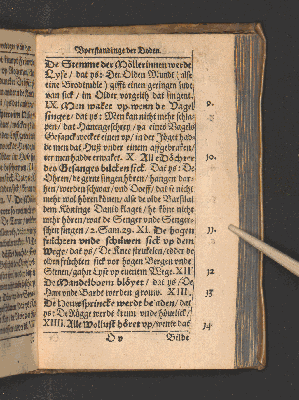 Vperstandinge der Doden.
De Stemme der Möllerinnen werde
Lyse / dat ys: Der Olden Mundt (alse
eine Brodtmöle) gifft einen geringen ludt
van sick / im Older vorgeith dat singent.
IX. Men waket vp wenn de Vagel
singet / dat ys: Men kan nicht mehr schla-
pen / dat Hanengeschrey / ya eines Vagels
Gesanck wecket einen vp / in der Jöget had-
de men dat Huß vnder einem affgebraken /
er men hadde erwaket. X. Alle Döchter
des Gesanges bücken sick. Dat ys: De
Ohren / de gerne singen hören / hangen der-
hen / werden schwar / vnd Dooff / dat se nicht
mehr wol hören könen / alse de olde Barsilai
dem Köninge Dauid klaget / he köne nicht
mehr hören / wat de Senger vnde Senger-
schen singen / 2. Sam. 29. XI. De hogen
früchten vnde schüwen sick vp dem
Wege / dat ys / De Knee struckelen / edder de
olden früchten sick vor hogen Bergen vnde
Stenen / gahn Lyse vp euenem Wege. XII
De Mandelboem blöyet / dat ys / De
Haer vnde Bardt werden grouw. XIII.
De Höuwsprincke werdt beladen / dat
ys: De Rügge werdt krum vnde höuelich /
XIIII. Alle Wollust höret vp / wente dat
O v
Bilde
9.
10.
11.
12
13
14